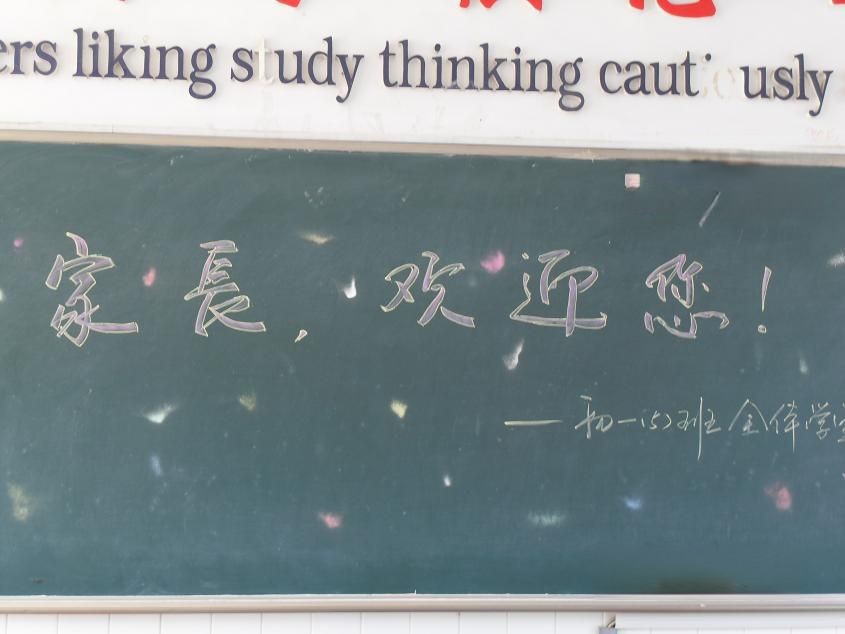 ers liking study thinking cautiously
家長，欢迎您！
——初一（5）班全体学生